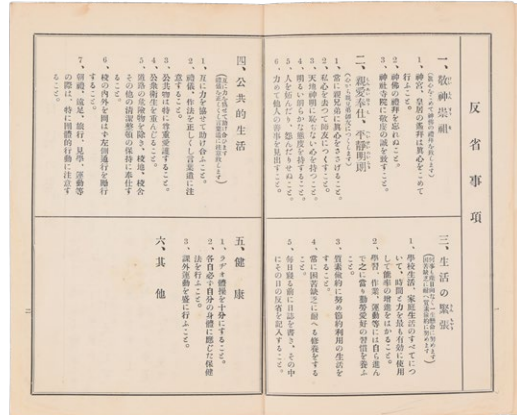 反省事項
一、敬神崇祖
1、神宮、皇居の遙拜は眞心をこめて
行ふこと。
2、神佛の禮拜を忘れぬこと。
3、神社寺院に敬虔の誠を致すこと。
二、親愛奉仕、平靜明朗
1、常に親兄弟に眞心をささげること。
2、私心を去つて師友につくすこと。
3、天地神明に恥ぢない心を持つこと。
4、明るい朗らかな態度を持すること。
5、人を妬んだり、怨んだりせぬこと。
6、力めて他人の善事を見出すこと。
三、生活の緊張
1、學校生活、家庭生活のすべてにつ
いて、時間と力を最も有効に使用
して能率の增進をはかること。
2、學習、作業、運動等には自ら進ん
で之に當り勤勞愛好の習慣を養ふ
こと。
3、質素儉約に努め節約利用の生活を
すること。
4、常に困苦缺乏に耐へる修養をする
こと。
5、每日寢る前に日誌を書き、その中
にその日の反省を記入すること。
四、公共的生活
1、互に力を協せて助け合ふこと。
2、禮儀、作法を正しくし言葉遣に注
意すること。
3、公共物は特に尊重愛護すること。
4、公衆衛生を重んずること。
5、道路の危險物を除き、校地、校舍
その他の清潔整頓の保持に奉仕す
ること。
6、校の內外を問はず左側通行を勵行
すること。
7、朝禮、遠足、旅行、見學、運動等
の際は、特に團體的行動に注意す
ること。
五、健康
1、ラヂオ體操を十分にすること。
2、各自必ず自分の身體に應じた保健
法を行ふこと。
3、課外運動を盛に行ふこと。
六、其他